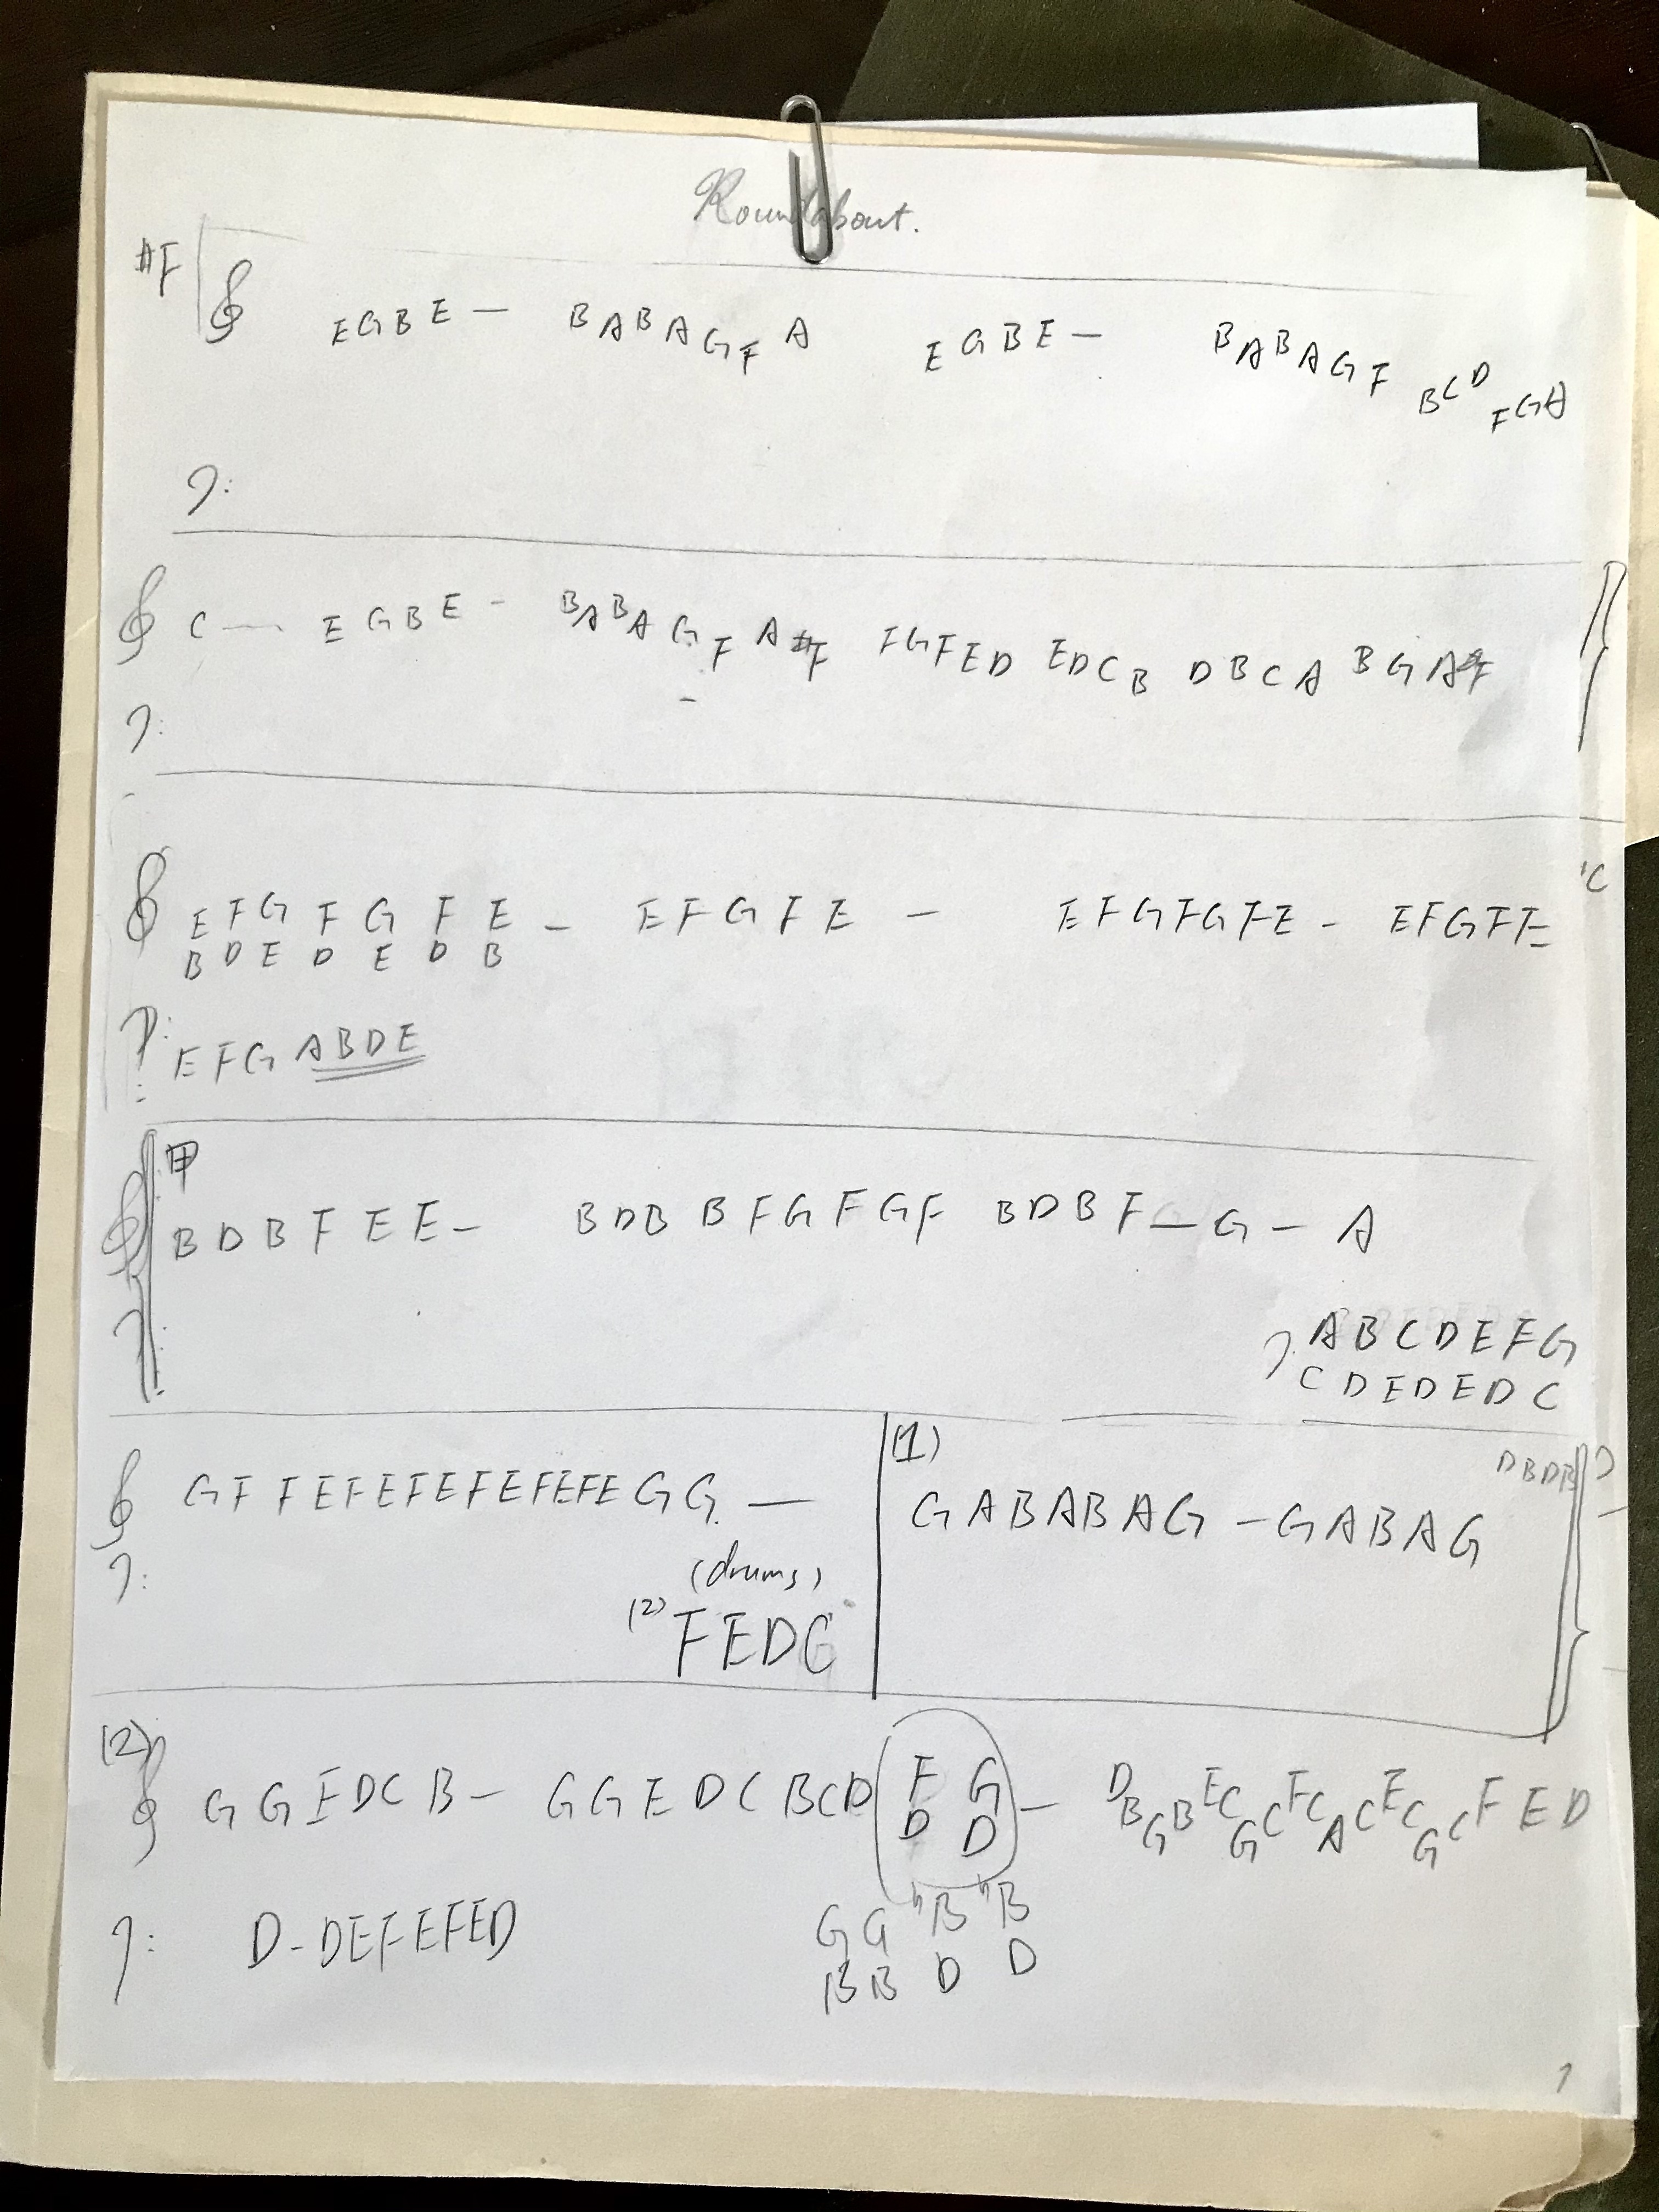 Roundabout.
#F
EGBE — BABAGFA EGBE — BABAGF BCD FGA
C — EGBE - BABAGFA#F FGFED EDCB DBCA BGA#F
'C
EFGFGFE — EFGFE — EFGFGFE - EFGFE
BDEDEDB
EFGABDE
BDBFEE — BDBBFGFGF BDBF — G — A
ABCDEFG
CDEDEDC
GFFEFEFEFEFEFEGG. —
(drums)
(2) FEDC
(1)
DBDB
GABABAG — GABAG
(2)
GGEDCB — GGEDCBCD FG — DBGBECGCFCACECGCFED
DD
D-DEFEFED
GG♮B♮B
BBDD
1